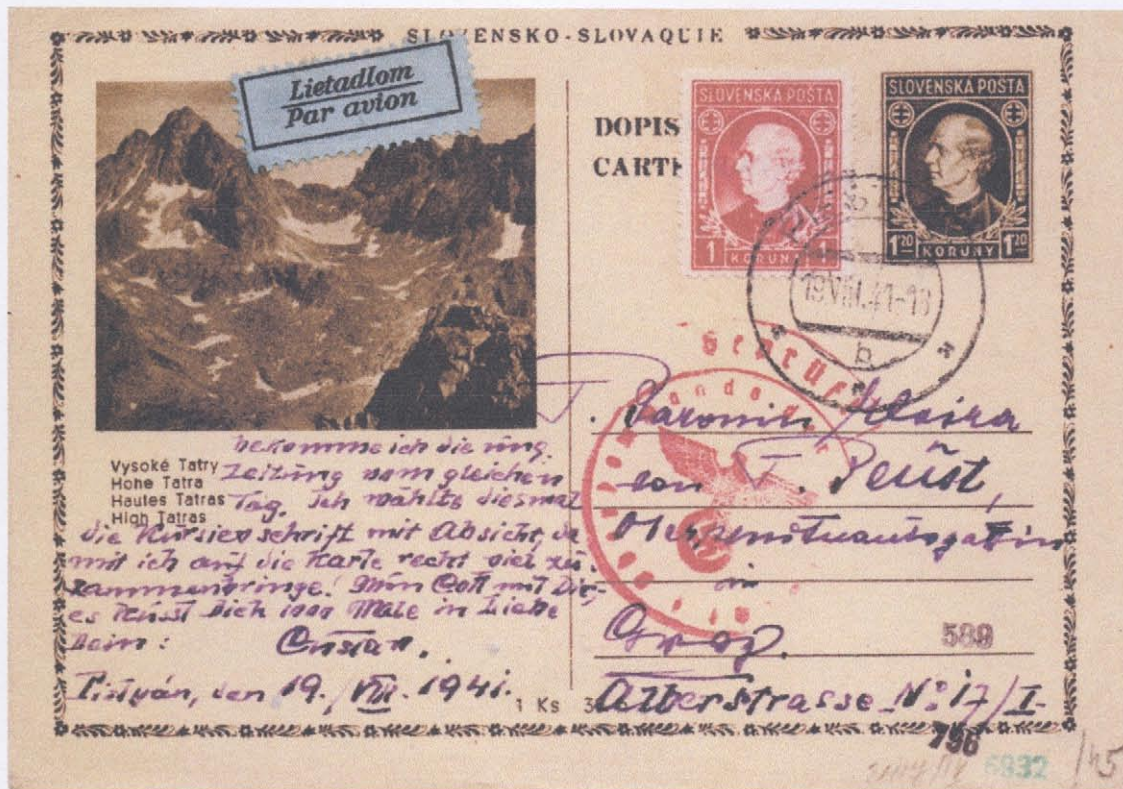 SLOVENSKO-SLOVAQUIE
Lietadlom
Par avion
DOPIS
CARTE
SLOVENSKÁ POŠTA
1 KORUNA 1
SLOVENSKÁ POŠTA
1 20 KORUNY 1 20
19.VIII.41-18
b
Geprüft
Vysoké Tatry
Hohe Tatra
Hautes Tatras
High Tatras
bekomme ich die ung.
Zeitung vom gleichen
Tag. Ich wählte diesmal
die Kursivschrift mit Absicht, da
mit ich auf die Karte recht viel zu-
sammenbringe! Nun Gott mit Dir,
es küsst Dich 1000 Male in Liebe
Dein:
Gustav.
Pistyán, den 19./VIII. 1941.
1 Ks 3
Baronin
von
in
Graz.
Alberstrasse No: 17/I.
589
796
6932
/45